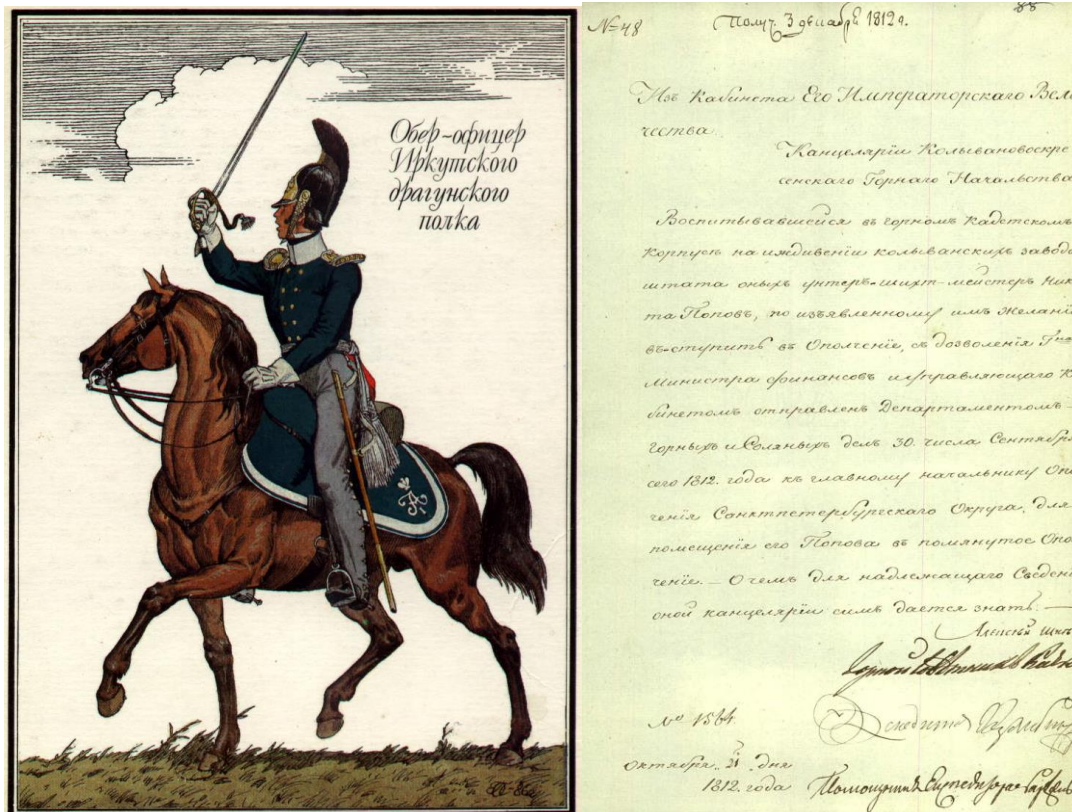 Обер-офицер
Иркутского
драгунского
полка
№ 48
Получ. 3 декабрѣ 1812 г.
88
Изъ Кабинета Его Императорскаго Вели
чества.
Канцеляріи Колывановоскре
сенскаго Горнаго Начальства
Воспитывавшейся въ горномъ Кадетскомъ
корпусѣ на иждивеніи колыванскихъ заводо
штата оныхъ унтеръ-шихт-мейстеръ Ники
та Поповъ, по изъявленному имъ желанію
въ-ступить въ Ополченіе, съ дозволенія
Министра финансовъ и управляющаго Ка
бинетомъ отправленъ Департаментомъ
горныхъ и Соляныхъ делъ 30. числа Сентября
сего 1812. года къ главному начальнику Опол
ченія Санктпетербургскаго Округа, для
помещенія его Попова въ помянутое Опол
ченіе. — О чемъ для надлежащаго Сведенія
оной канцеляріи симъ дается знать. —
№ 1564
Октября 21 дня
1812. года Помощникъ